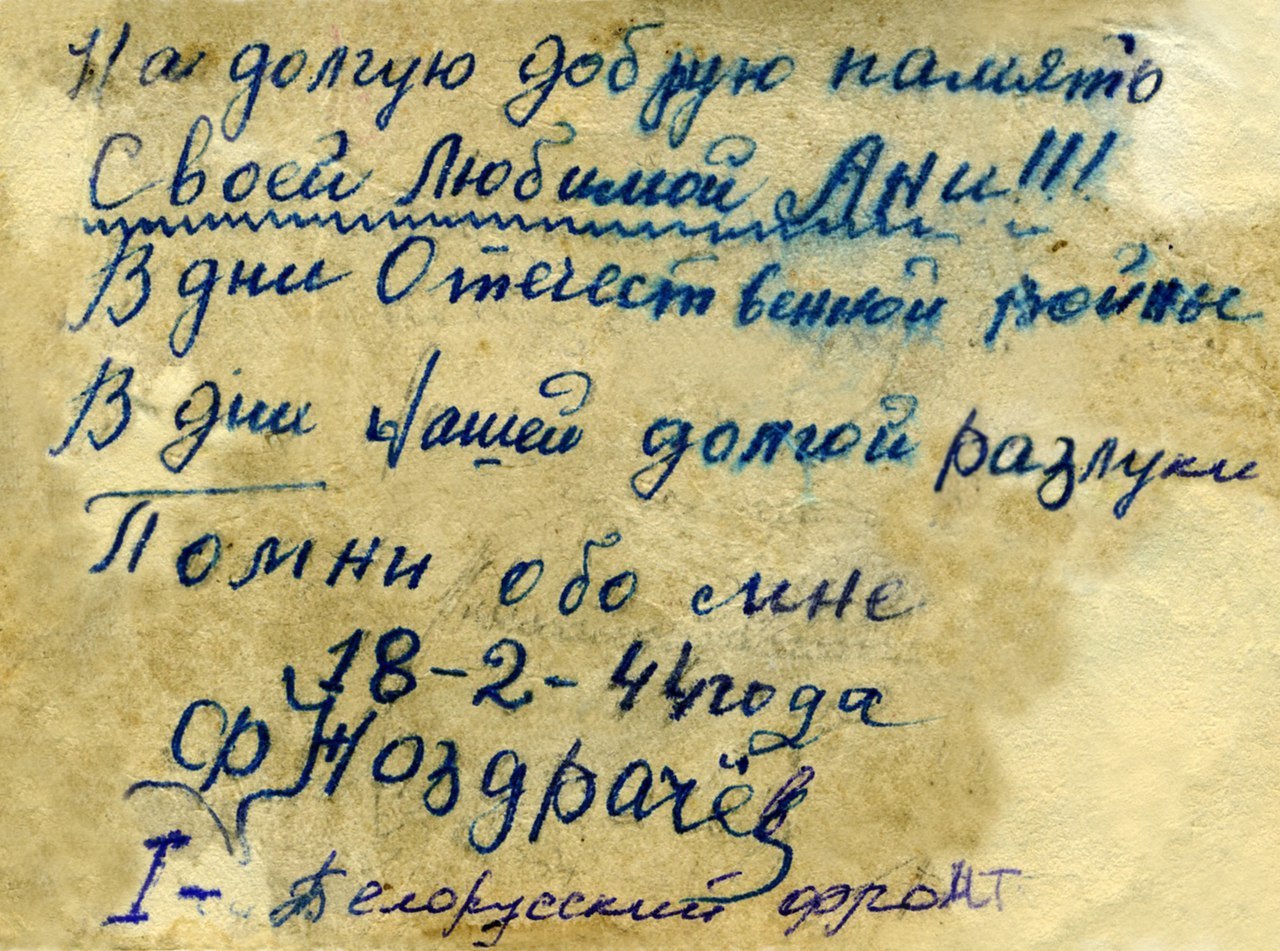 На долгую добрую память
Своей Любимой Ани!!!
В дни Отечественной войны
В дни Нашей долгой разлуки
Помни обо мне
18-2-44 года
Ф Ноздрачёв
I- Белорусский фронт